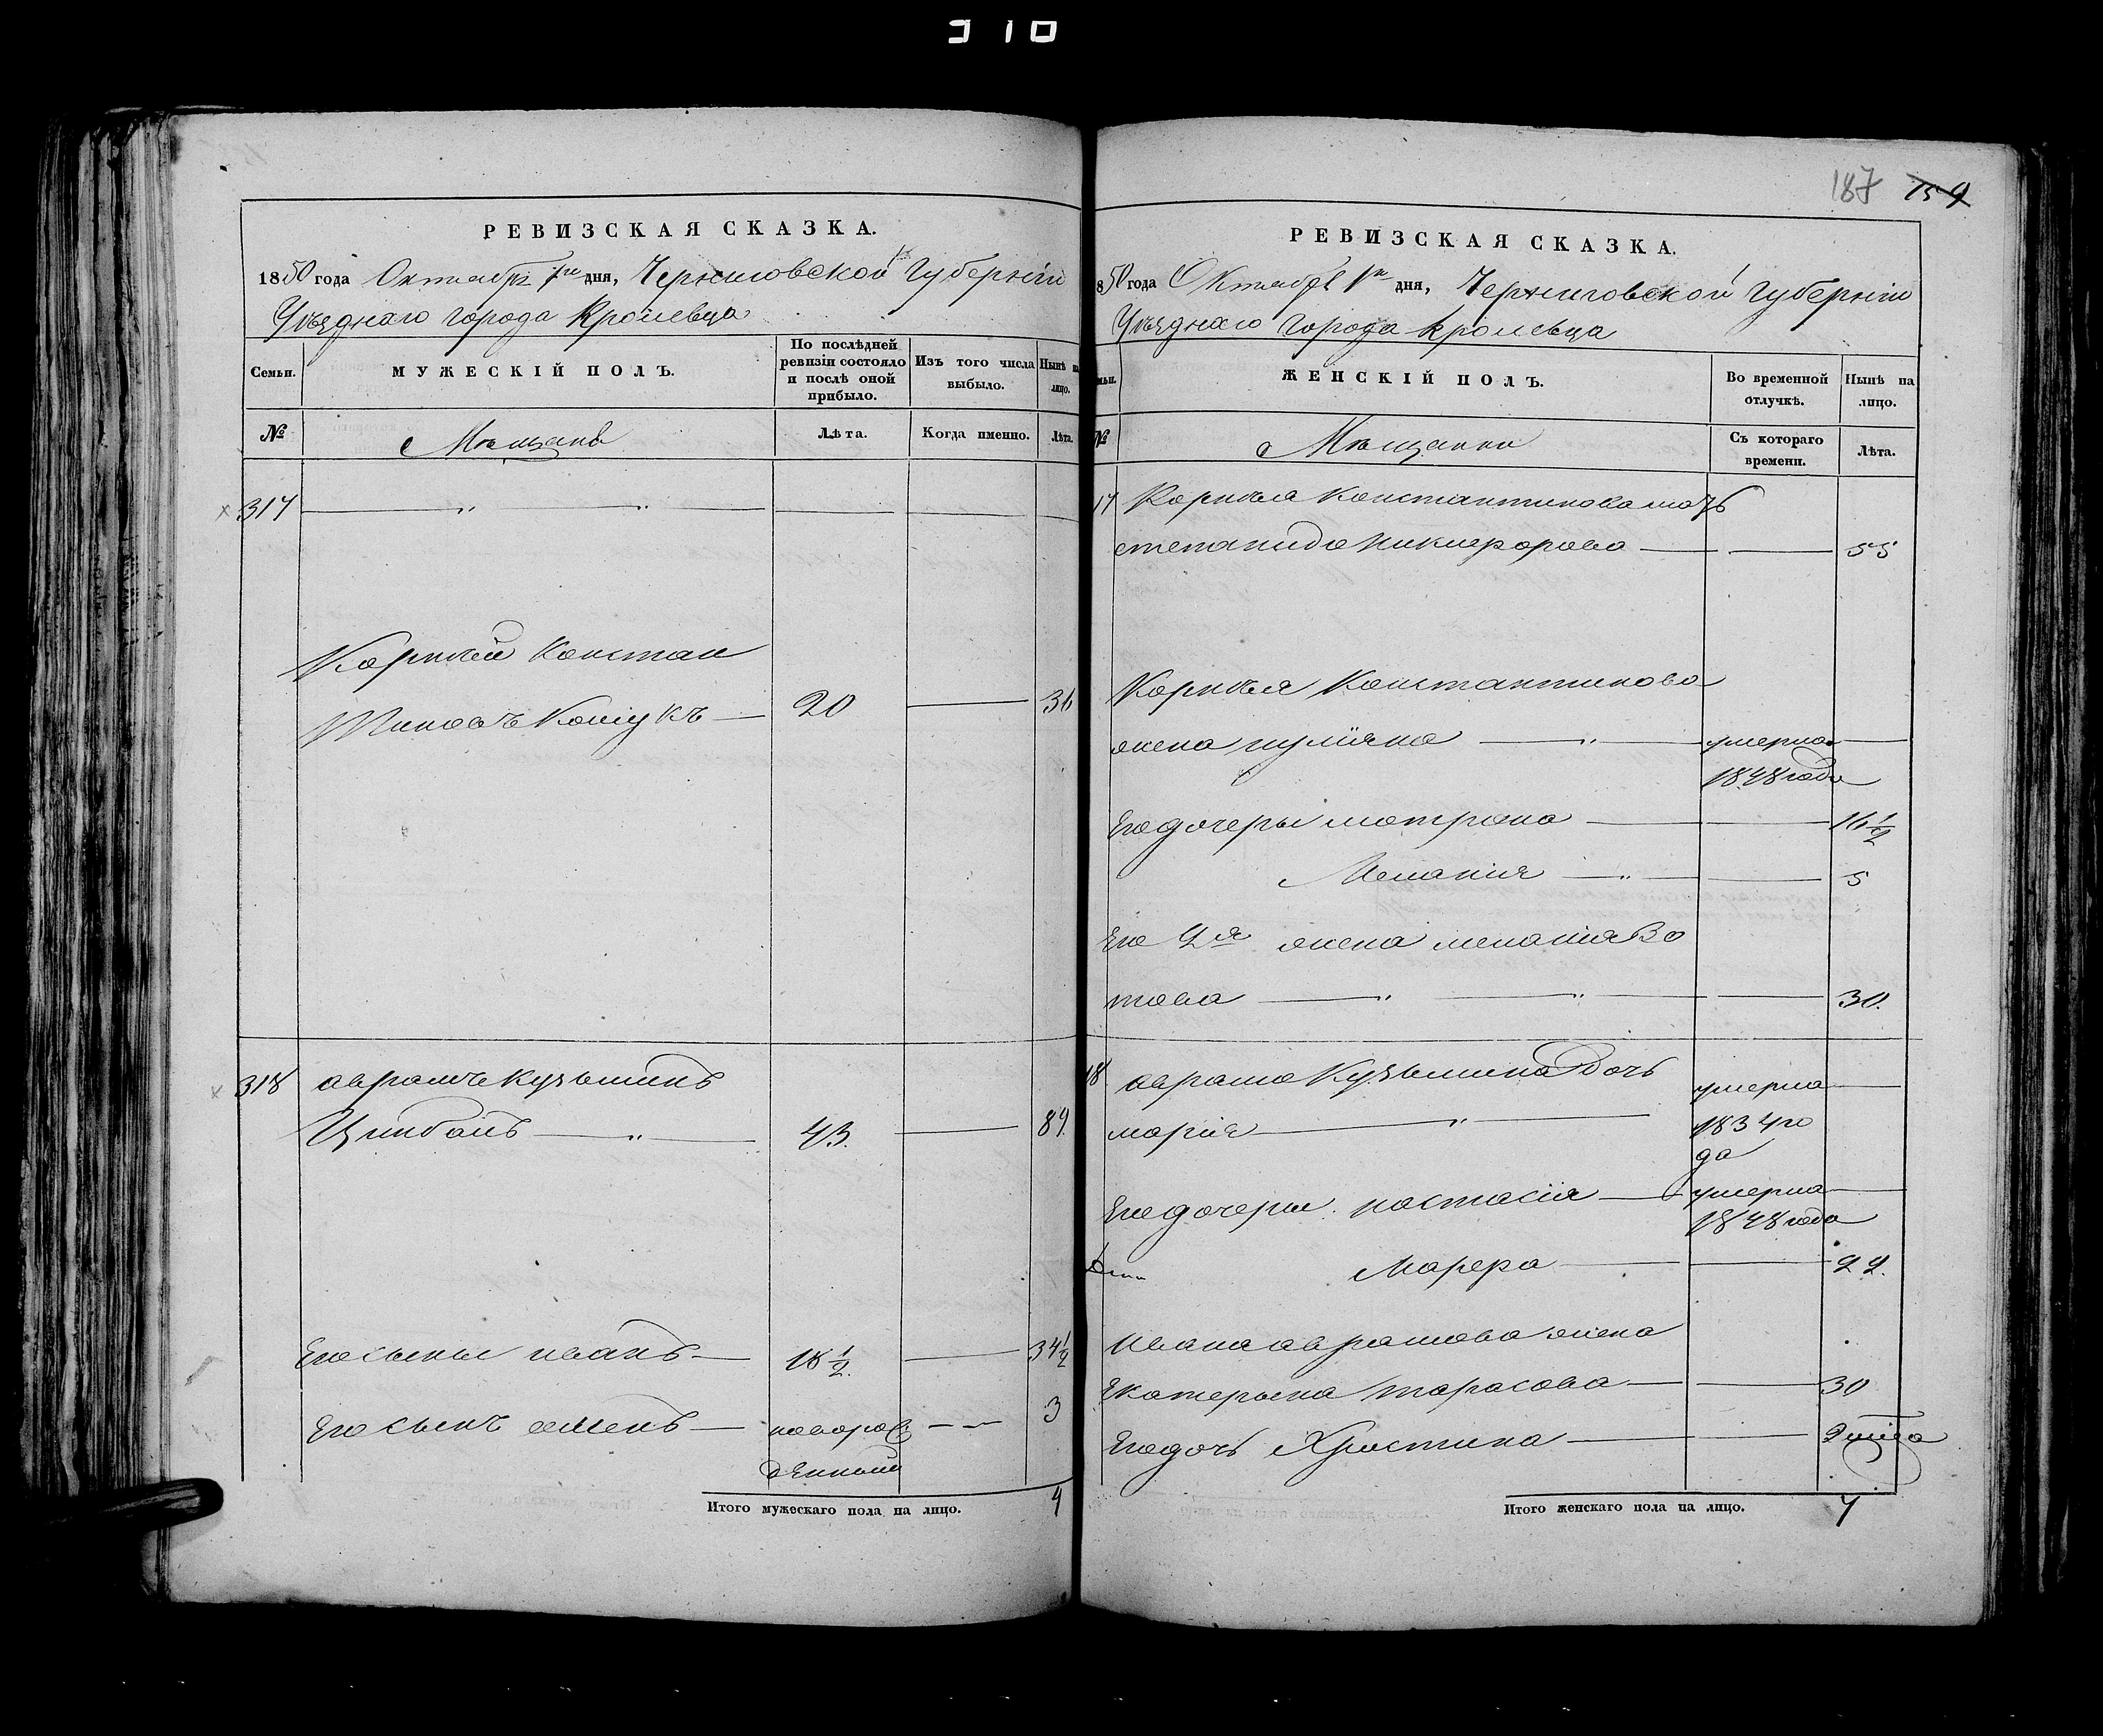 310
РЕВИЗСКАЯ СКАЗКА.
1850 года Октября 1го дня, Черниговской Губерніи
Уѣзднаго города Кролевца
Семьи.
МУЖЕСКІЙ ПОЛЪ.
По послѣдней ревизіи состояло и послѣ оной прибыло.
Изъ того числа выбыло.
Нынѣ на лицо.
№
Мѣщанѣ
Лѣта.
Когда именно.
Лѣта.
317
Корнѣй Констан
тиновъ
20
36
318 аврамъ Кузьминъ
43.
89.
Его сыны иванъ
18 1/2.
34 1/2
Его сынъ семенъ
новорож
денный
3
Итого мужескаго пола на лицо.
4
187 159
РЕВИЗСКАЯ СКАЗКА.
850 года Октября 1го дня, Черниговской Губерніи
Уѣзднаго Города Кролевца
мьи.
ЖЕНСКІЙ ПОЛЪ.
Во временной отлучкѣ.
Нынѣ на лицо.
№
Мѣщанки
Съ котораго времени.
Лѣта.
17 Корнѣя Константинова мать
степанида Никифорова
55
Корнѣя Константинова
жена иулияна
умерла
1848 года
Его дочеры мотрона
16 1/2
Меланія
5
Его 2я жена меланія Во
това
30.
18 аврама Кузьмина Дочь
умерла
марія
1834 го
да
Его дочеры. настасія
умерла
1848 года
Марфа
22.
Ивана аврамова жена
Екатерына тарасова
30
Его дочь Христина
Итого женскаго пола на лицо.
7